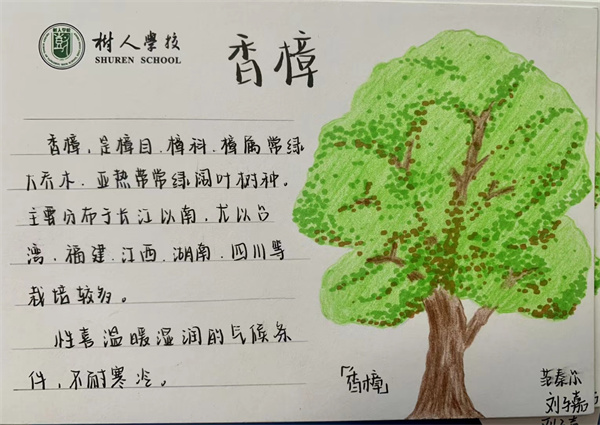 树人學校
SHUREN SCHOOL
香樟
香樟，是樟目、樟科、樟属常绿
大乔木，亚热带常绿阔叶树种。
主要分布于长江以南，尤以台
湾、福建、江西、湖南、四川等
栽培较多。
性喜温暖湿润的气候条
件，不耐寒冷。
「香樟」